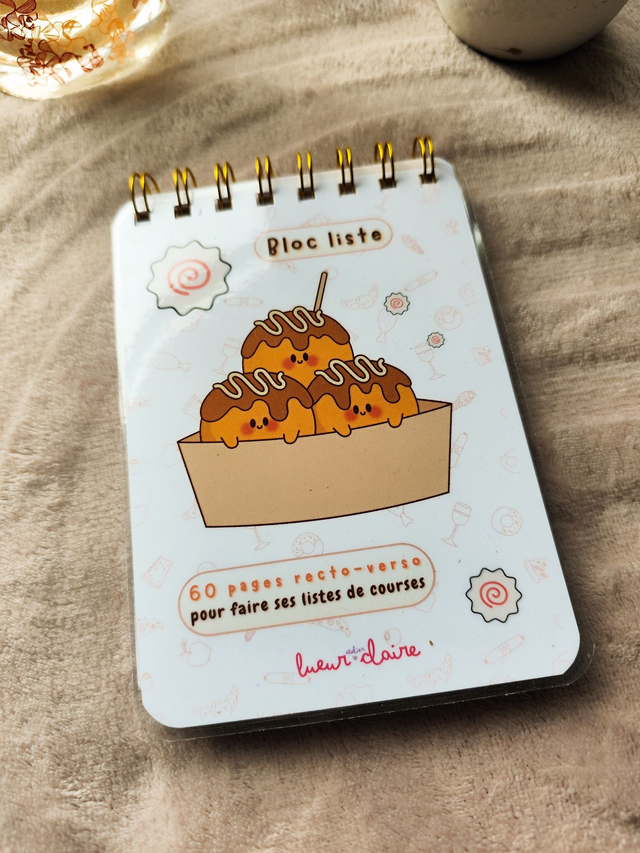 Bloc liste
60 pages recto-verso
pour faire ses listes de courses
atelier
lueur claire